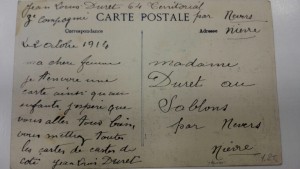 Jean Louis Duret 64 Territorial
8e Compagnie
CARTE POSTALE
par Nevers
Nièvre
Correspondance
Adresse
Le 2 octobre 1914
ma chère femme
je t'envoie une
carte ainsi qu'au
enfants j'espère que
vous allez tous bien
vous mettrez toutes
les cartes de cartes de
coté jean Louis Duret
madame
Duret au
Sablons
par Nevers
Nièvre